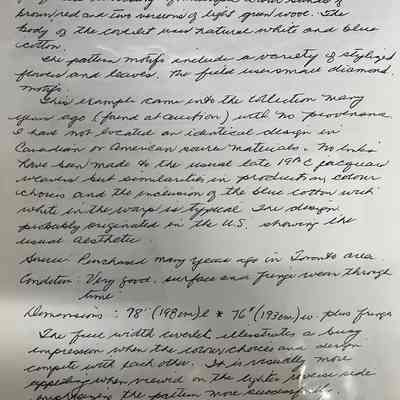 brown/red and two versions of light green wool. The
body of the coverlet uses natural white and blue
cotton.
The pattern motifs include a variety of stylized
flowers and leaves. The field uses small diamond
motifs.
This example came into the collection many
years ago (found at auction) with no provenance.
I had not located an identical design in
Canadian or American source materials. No links
have been made to the usual late 19th C jacquard
weavers but similarities in production, colour
choices and the inclusion of the blue cotton with
white in the warp is typical. The design
probably originated in the U.S. showing the
usual aesthetic.
Source: Purchased many years ago in Toronto area.
Condition: Very good. surface and fringe wear through
time
Dimensions: 78" (198cm) l * 76" (193cm) w. plus fringe
The full width coverlet illustrates a busy
impression when the colour choices and design
compete with each other. It is visually more
appealing when viewed on the lighter reverse side
emphasizing the pattern more